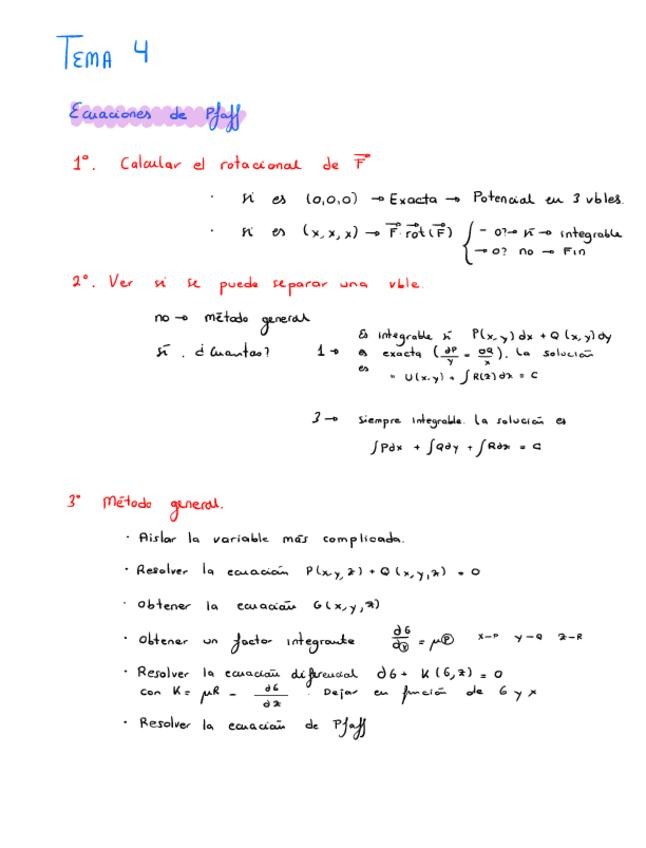 TEMA 4
Ecuaciones de Pfaff
1º. Calcular el rotacional de F⃗
· si es (0,0,0) → Exacta → Potencial en 3 vbles.
· si es (x,x,x) → F⃗·rot(F⃗) { - 0? → si → integrable
→ 0? no → Fin
2º. Ver si se puede separar una vble.
no → método general
Si . ¿Cuantas? 1 → Es integrable si P(x,y)dx + Q(x,y)dy
es exacta (∂P/y = ∂Q/x). La solución
es = U(x,y) + ∫R(z)dz = C
3 → Siempre integrable. La solución es
∫Pdx + ∫Qdy + ∫Rdz = C
3º Método general.
· Aislar la variable más complicada.
· Resolver la ecuación P(x,y,z) + Q(x,y,z) = 0
· Obtener la ecuación G(x,y,z)
· Obtener un factor integrante ∂G/∂x = μP x-P y-Q z-R
· Resolver la ecuación diferencial dG + K(G,z) = 0
con K = μR - ∂G/∂z . Dejar en función de G y x
· Resolver la ecuación de Pfaff